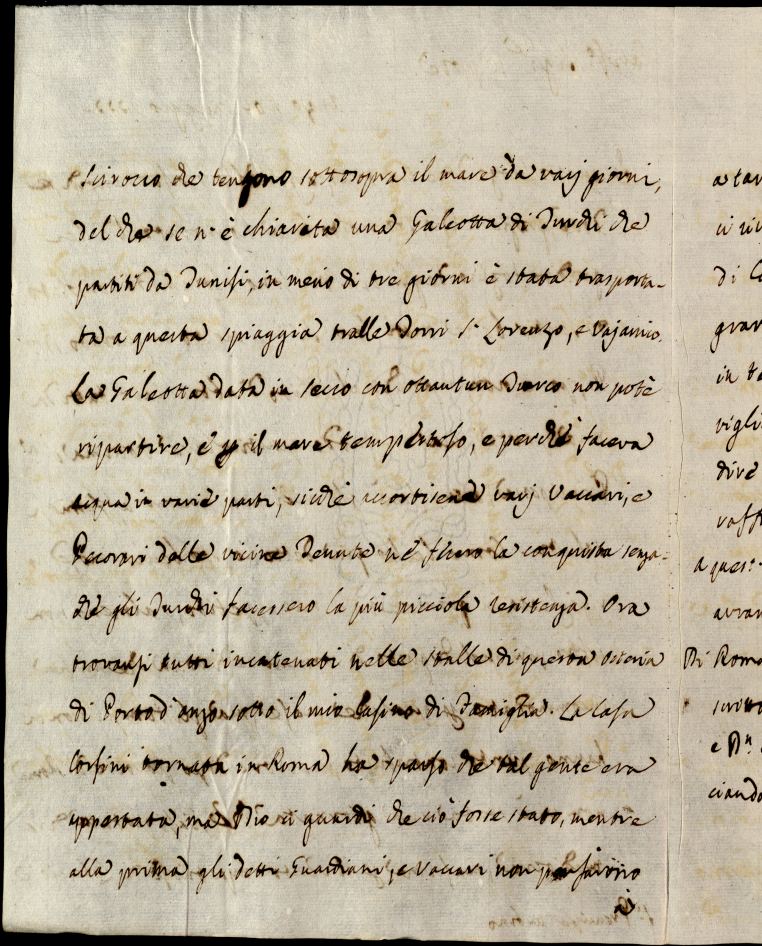 Scirocco che tengono sottosopra il mare da varj giorni,
del che se n'è chiarita una Galeotta di Turchi che
partiti da Tunisi, in meno di tre giorni è stata trasporta-
ta a questa spiaggia tralle Torri S. Lorenzo, e Vajanico.
La Galeotta data in secco con ottantun Turco non potè
ripartire, e p il mare tempestoso, e perchè faceva
acqua in varie parti, sicchè accortisene varj Vaccari, e
Pecorari delle vicine Tenute ne fecero la conquista senza-
chè gli Turchi facessero la più picciola resistenza. Ora
trovansi tutti incatenati nelle stalle di questa osteria
di Porto d'anzo sotto il mio Casino di Famiglia. La Casa
Corsini tornata in Roma ha sparso che tal gente era
appestata, ma Dio ci guardi che ciò fosse stato, mentre
alla prima gli detti Guardiani, e Vaccari non pensavono
à
a tav
ci riv
di C
grav
in ta
vigli
dire
raff
a quest
avran
Di Roma
scritto
e Dn
ciando